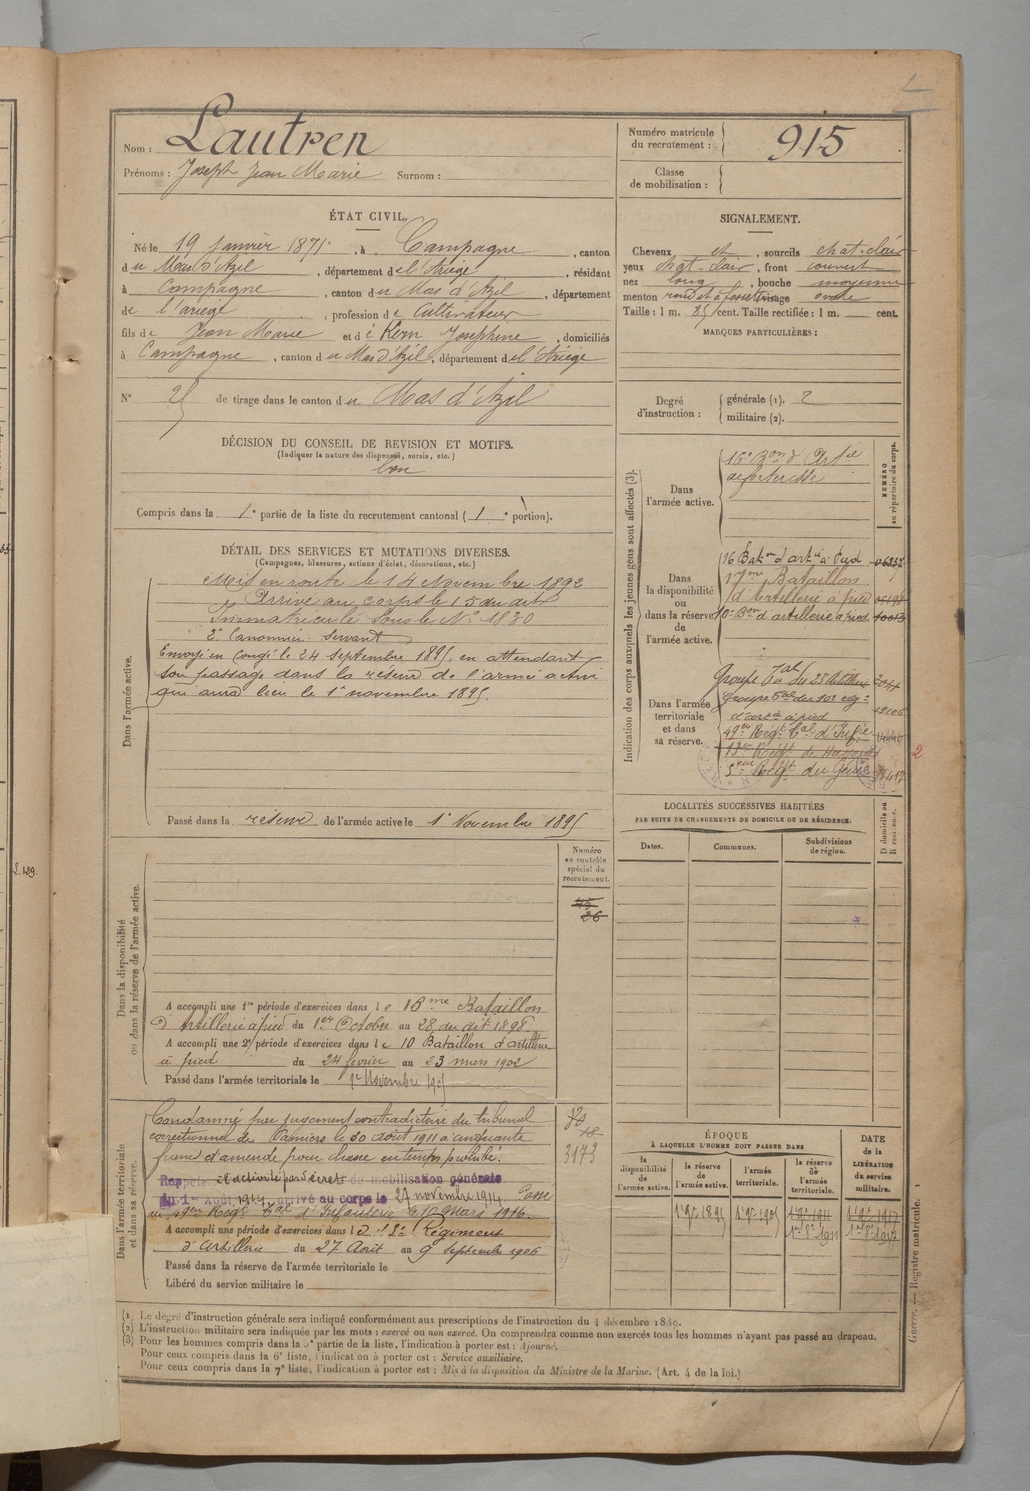 Nom : Lautren
Prénoms : Joseph Jean Marie Surnom :
Numéro matricule du recrutement : 915
Classe de mobilisation :
ÉTAT CIVIL.
Né le 19 janvier 1871, à Campagne, canton
du Mas d'Azil, département de l'Ariège, résidant
à Campagne, canton du Mas d'Azil, département
de l'ariège, profession de Cultivateur
fils de Jean Marie et de Kern Josephine, domiciliés
à Campagne, canton du Mas d'Azil, département de l'Ariège
N° 25 de tirage dans le canton du Mas d'Azil
DÉCISION DU CONSEIL DE REVISION ET MOTIFS.
(Indiquer la nature des dispenses, sursis, etc.)
bon
Compris dans la 1e partie de la liste du recrutement cantonal (1e portion).
DÉTAIL DES SERVICES ET MUTATIONS DIVERSES.
(Campagnes, blessures, actions d'éclat, décorations, etc.)
Dans l'armée active.
Mis en route le 14 Novembre 1892
Arrivé au corps le 15 du dit
Immatriculé sous le N° 1830
2e Canonnier Servant
Envoyé en congé le 24 septembre 1895, en attendant
son passage dans la réserve de l'armée active
qui aura lieu le 1e novembre 1895.
Passé dans la réserve de l'armée active le 1e Novembre 1895
Dans la disponibilité
ou dans la réserve de l'armée active.
Numéro
au contrôle
spécial du
recrutement.
45
26
A accompli une 1re période d'exercices dans le 16me Bataillon
d'Artillerie à pied du 1er Octobre au 28 du dit 1898.
A accompli une 2e période d'exercices dans le 10 Bataillon d'artillerie
à pied du 24 février au 23 mars 1902
Passé dans l'armée territoriale le 1er Novembre 1905
Dans l'armée territoriale
et dans sa réserve.
Condamné par jugement contradictoire du tribunal
correctionnel de Pamiers le 30 août 1911 à cinquante
francs d'amende pour chasse en temps prohibé.
3173
Rappelé à l'activité par décret de mobilisation générale
du 1er Août 1914, arrivé au corps le 27 novembre 1914. Passé
au 49em Régt Tal d'Infanterie le 10 mars 1916.
A accompli une période d'exercices dans le 2e Régiment
d'artillerie du 27 Août au 9 septembre 1906
Passé dans la réserve de l'armée territoriale le
Libéré du service militaire le
SIGNALEMENT.
Cheveux et, sourcils chat-clair
yeux chat-clair, front couvert
nez long, bouche moyenne
menton rond et à fossette visage ovale
Taille : 1 m. 85 cent. Taille rectifiée : 1 m. cent.
MARQUES PARTICULIÈRES :
Degré d'instruction :
générale (1). 2
militaire (2).
Indication des corps auxquels les jeunes gens sont affectés (3).
NUMÉRO
au répertoire du corps.
Dans l'armée active.
16e Bon d'Artie
de forteresse
Dans la disponibilité ou dans la réserve de l'armée active.
16 Baton d'artie à Pied
17me Bataillon
d'Artillerie à pied
10e Bon d'artillerie à pied 10013
Dans l'armée territoriale et dans sa réserve.
Groupe Tal du 2e Artillerie
Groupe Tal du 10e
d'artie à pied 12106
49em Régt Tal d'Infie 14440
13em Régt de Hussards
5eme Régt du Génie
2
LOCALITÉS SUCCESSIVES HABITÉES
PAR SUITE DE CHANGEMENTS DE DOMICILE OU DE RÉSIDENCE.
D domicile ou
R résidence.
Dates. Communes. Subdivisions de région.
ÉPOQUE
À LAQUELLE L'HOMME DOIT PASSER DANS
la disponibilité de l'armée active.
la réserve de l'armée active.
l'armée territoriale.
la réserve de l'armée territoriale.
DATE
de la
LIBÉRATION
du service
militaire.
1er 9e 1895 1er 9e 1905 1er 9e 1911 1er 9e 1917
1er 8e 1911 1er 8e 1917
(1) Le degré d'instruction générale sera indiqué conformément aux prescriptions de l'instruction du 4 décembre 1889.
(2) L'instruction militaire sera indiquée par les mots : exercé ou non exercé. On comprendra comme non exercés tous les hommes n'ayant pas passé au drapeau.
(3) Pour les hommes compris dans la 5e partie de la liste, l'indication à porter est : Ajourné.
Pour ceux compris dans la 6e liste, l'indication à porter est : Service auxiliaire.
Pour ceux compris dans la 7e liste, l'indication à porter est : Mis à la disposition du Ministre de la Marine. (Art. 4 de la loi.)
Guerre. — Registre matricule. 1